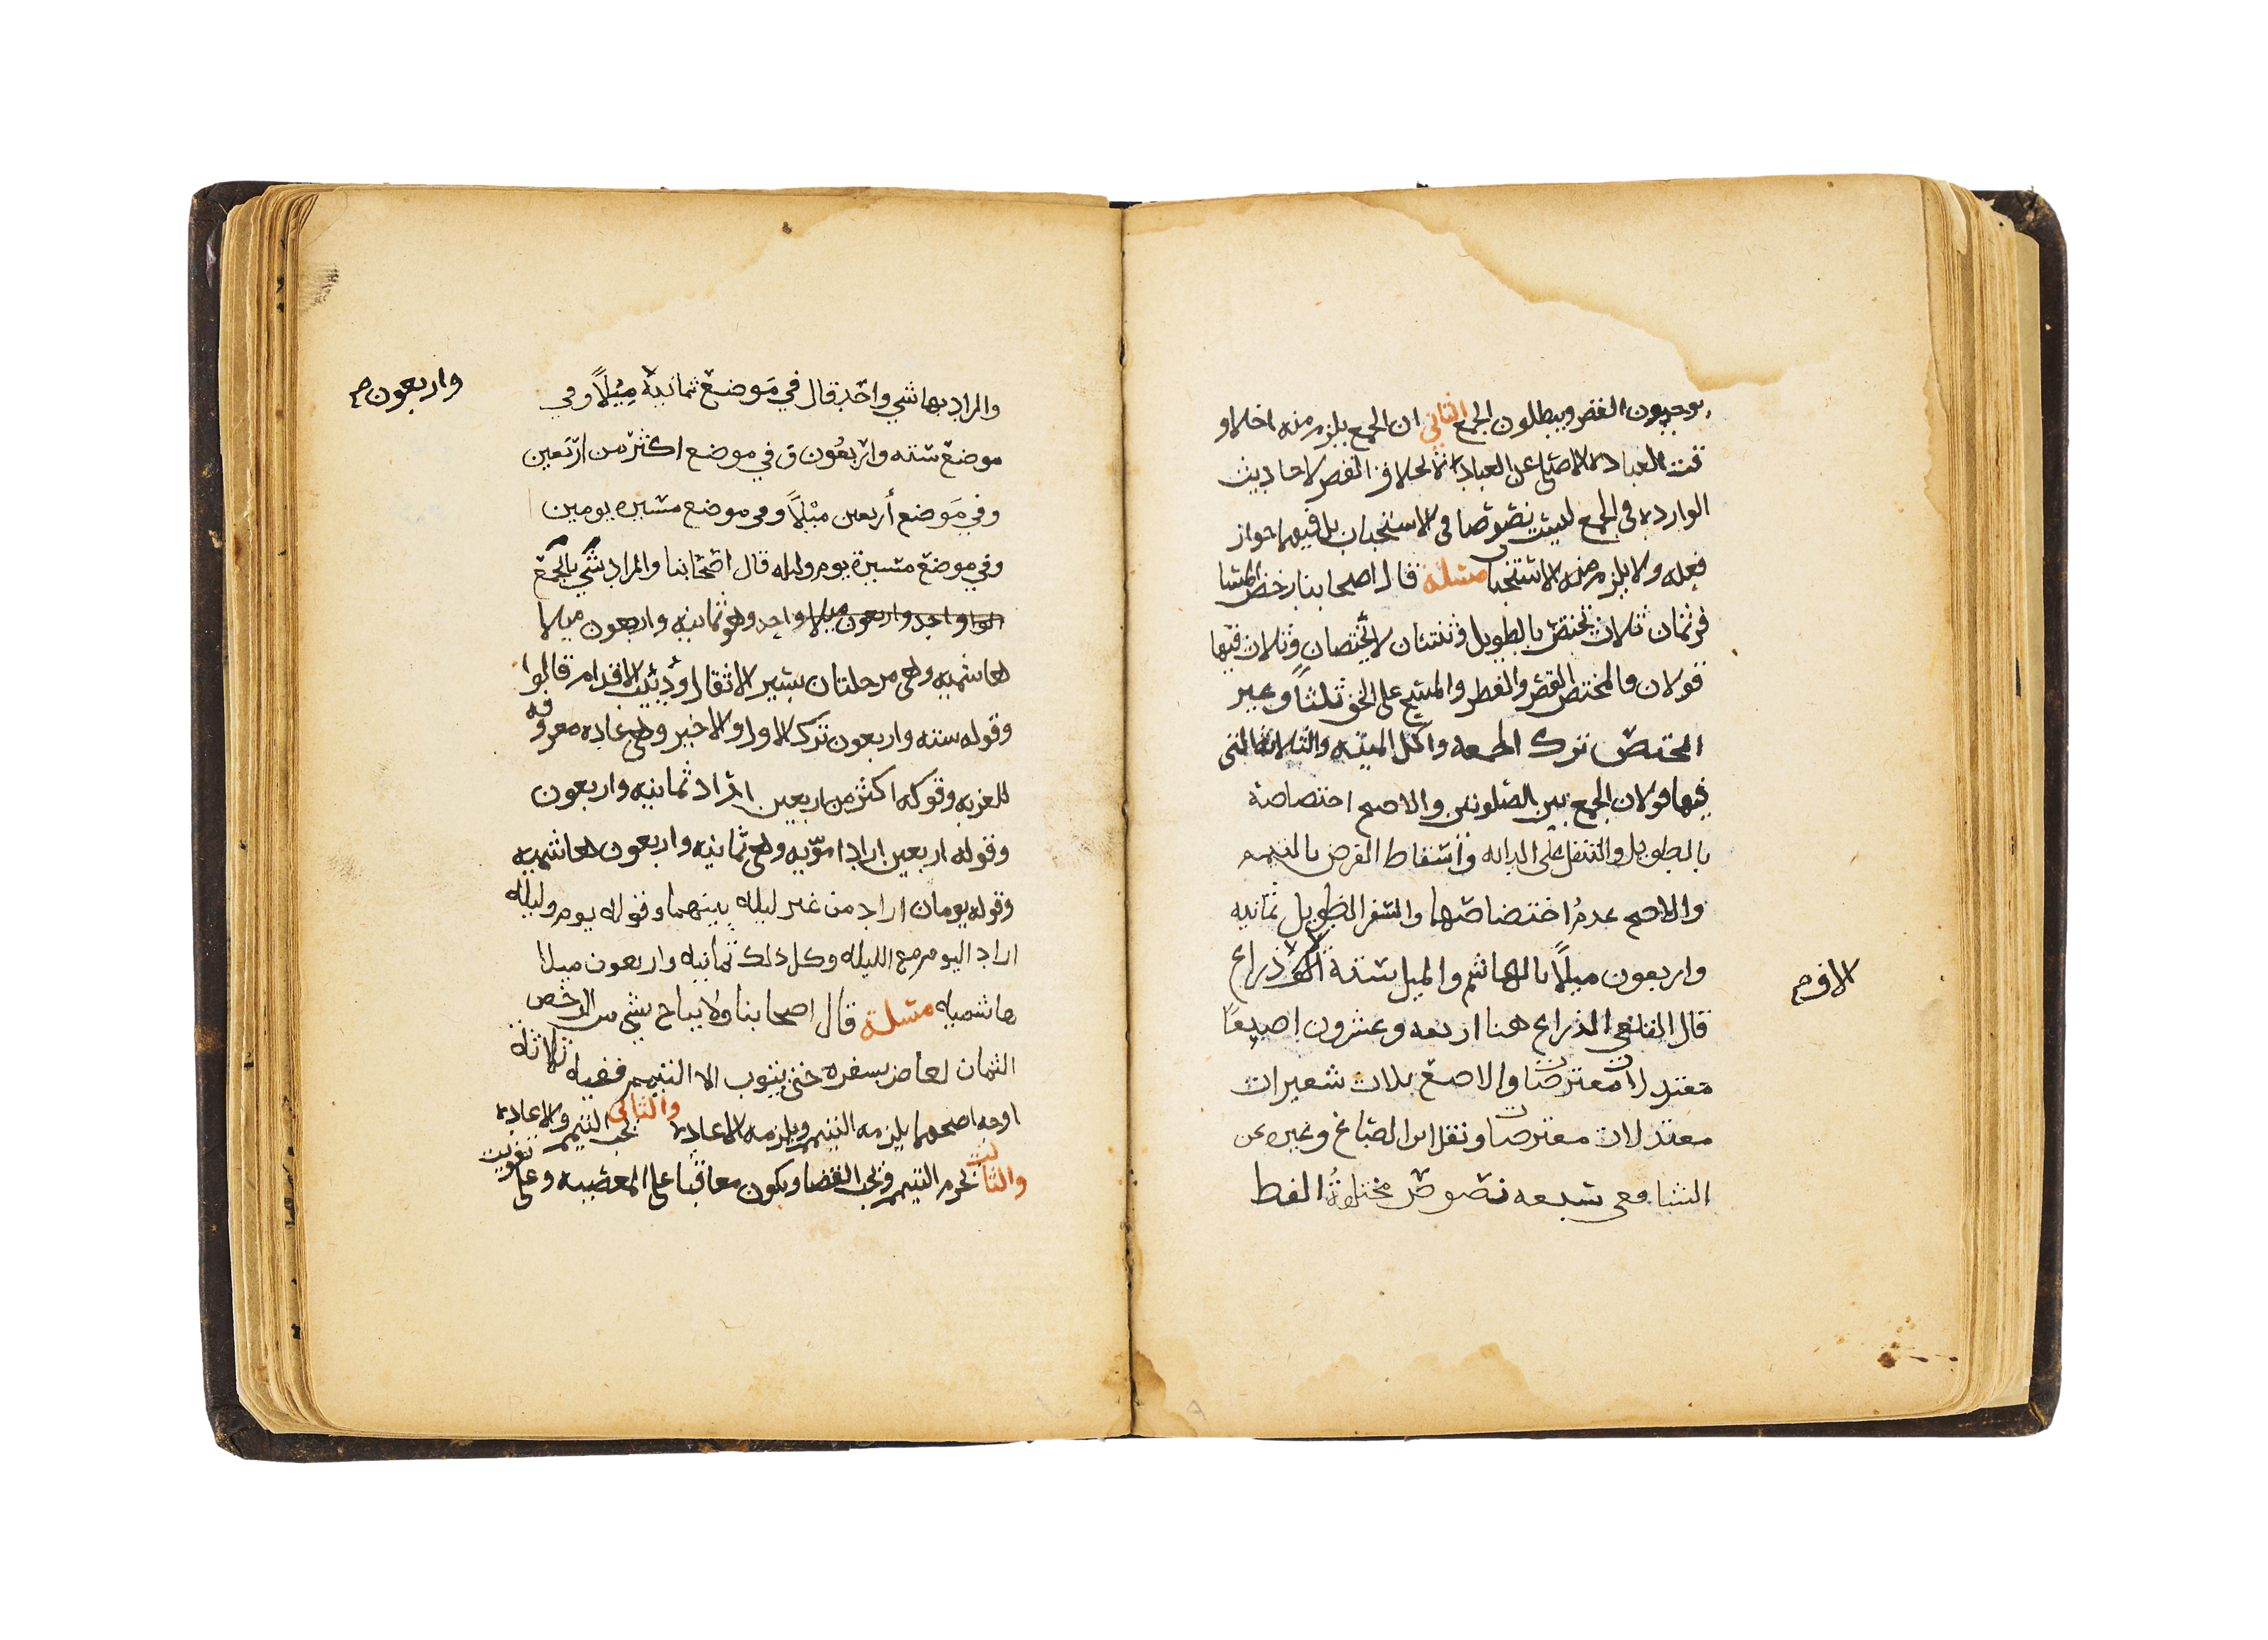 يوجبون القصر ويبطلون الجمع الثاني ان الجمع يلزم منه اخلاو
قت العباده الاصلي عن العبادة بخلاف القصر لاحاديث
الوارده في الجمع ليست نصوصا في الاستحباب بل فيها جواز
فعله ولا يلزم منه الاستحباب مسئلة قال اصحابنا رخص السفر
ثمان ثلاث تختص بالطويل وثنتان لا تختصان وثلاث فيها
قولان فالمختص القصر والفطر والمسح على الخف ثلثا وغير
المختص ترك الجمعه واكل الميته والثلاثه التي
فيها قولان الجمع بين الصلوتين والاصح اختصاصه
بالطويل والتنفل على الدابه واسقاط الفرض بالتيمم
والاصح عدم اختصاصهما والسفر الطويل ثمانيه
واربعون ميلًا بالهاشم والميل ستة الف ذراع
الاف صح
قال القلعي الذراع هنا اربعه وعشرون اصبعًا
معتدلات معترضات والاصبع ثلاث شعيرات
معتدلات معترضات ونقل ابن الصباغ وغيره عن
الشافعي سبعه نصوص مختلفة الفظ
والمراد بها شي واحد قال في موضع ثمانية ميلًا وفي
واربعون صح
موضع سته واربعون وفي موضع اكثر من اربعين
وفي موضع أربعين ميلًا وفي موضع مسيره يومين
وفي موضع مسيرة يوم وليله قال اصحابنا والمراد بالجمع
واحد واربعون ميلا واحد وهو ثمانيه واربعون ميلا
هاشميه وهي مرحلتان بسير الاثقال ودبيب الاقدام قالوا
وقوله سته واربعون ترك الاول والاخير وهي عاده معروفه
للعرب وقوله اكثر من اربعين اراد ثمانيه واربعون
وقوله اربعين اراد امويه وهي ثمانيه واربعون هاشميه
وقوله يومان اراد من غير ليله بينهما وقوله يوم وليله
اراد اليوم مع الليله وكل ذلك ثمانيه واربعون ميلا
هاشميه مسئلة قال اصحابنا ولا يباح شي من الرخص
الثمان لعاص بسفره حتى يتوب الا التيمم ففيه ثلاثة
اوجه اصحها يلزمه التيمم ويلزمه الاعادة والثاني يجب التيمم ولا اعادة
والثالث يحرم التيمم ويجب القضا ويكون معاقبا على المعصيه وعلى تفويت